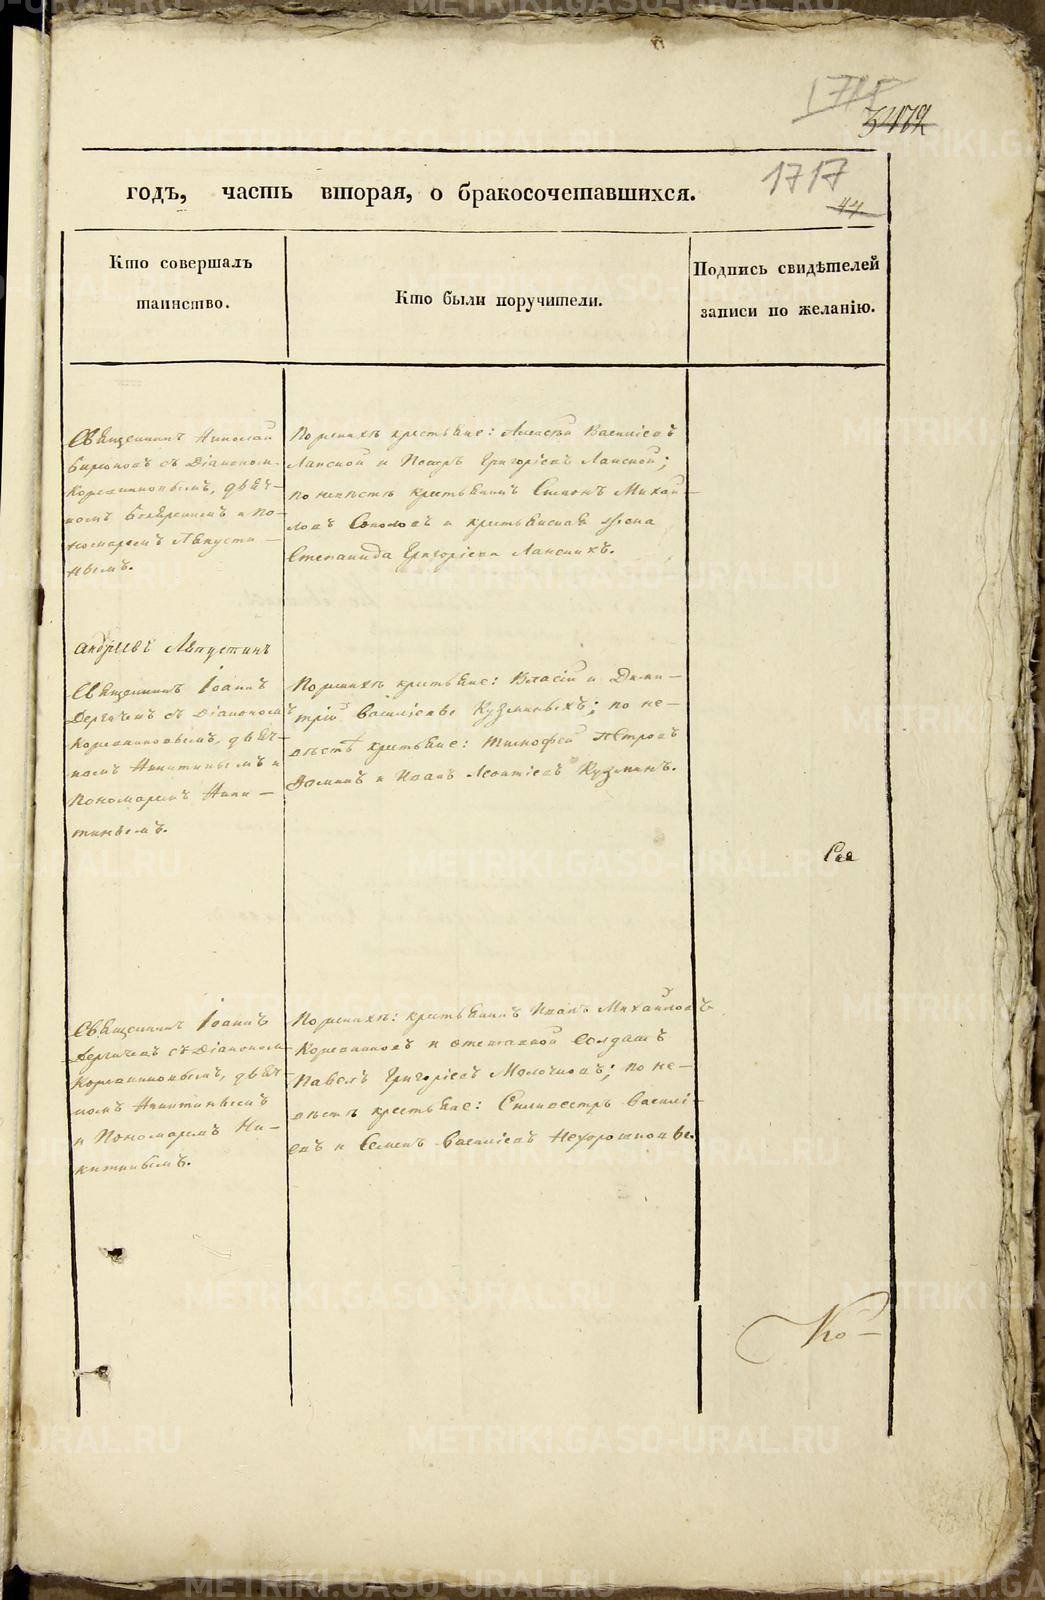 1717
годъ, часть вторая, о бракосочетавшихся.
Кто совершалъ
таинство.
Кто были поручители.
Подпись свидѣтелей
записи по желанію.
Священникъ Николай
съ Діаконом
Коровинновымъ, дьяч-
комъ и по-
номаремъ Августи-
нымъ.
По женихѣ крестьяне: Алексѣй Василіевъ
Лапской и Петръ Григоріевъ Лапской;
по невѣстѣ крестьянинъ Симонъ Михай-
ловъ Соколовъ и крестьянская жена
Степанида Григоріева Лапскихъ.
Андреевъ Августинъ
Священникъ Іоаннъ
Дергачевъ съ Діакономъ
Коровинновымъ, дьяч-
комъ Никитинымъ и
Пономаремъ Ники-
тинымъ.
По женихѣ крестьяне: Власій и Дими-
трій Василіевы Кузминыхъ; по не-
вѣстѣ крестьяне: Тимофей Петровъ
Фоминъ и Иванъ Леонтіевъ Кузминъ.
Священникъ Іоаннъ
Дергачевъ съ Діакономъ
Коровинновымъ, дьяч-
комъ Никитинымъ
и Пономаремъ Ни-
китинымъ.
По женихѣ: крестьянинъ Иванъ Михайловъ
Коровинновъ и отставной солдатъ
Павелъ Григоріевъ Молочковъ; по не-
вѣстѣ крестьяне: Силивестръ Василі-
евъ и Семенъ Василіевъ Нехорошковы.
Ко-
METRIKI.GASO-URAL.RU